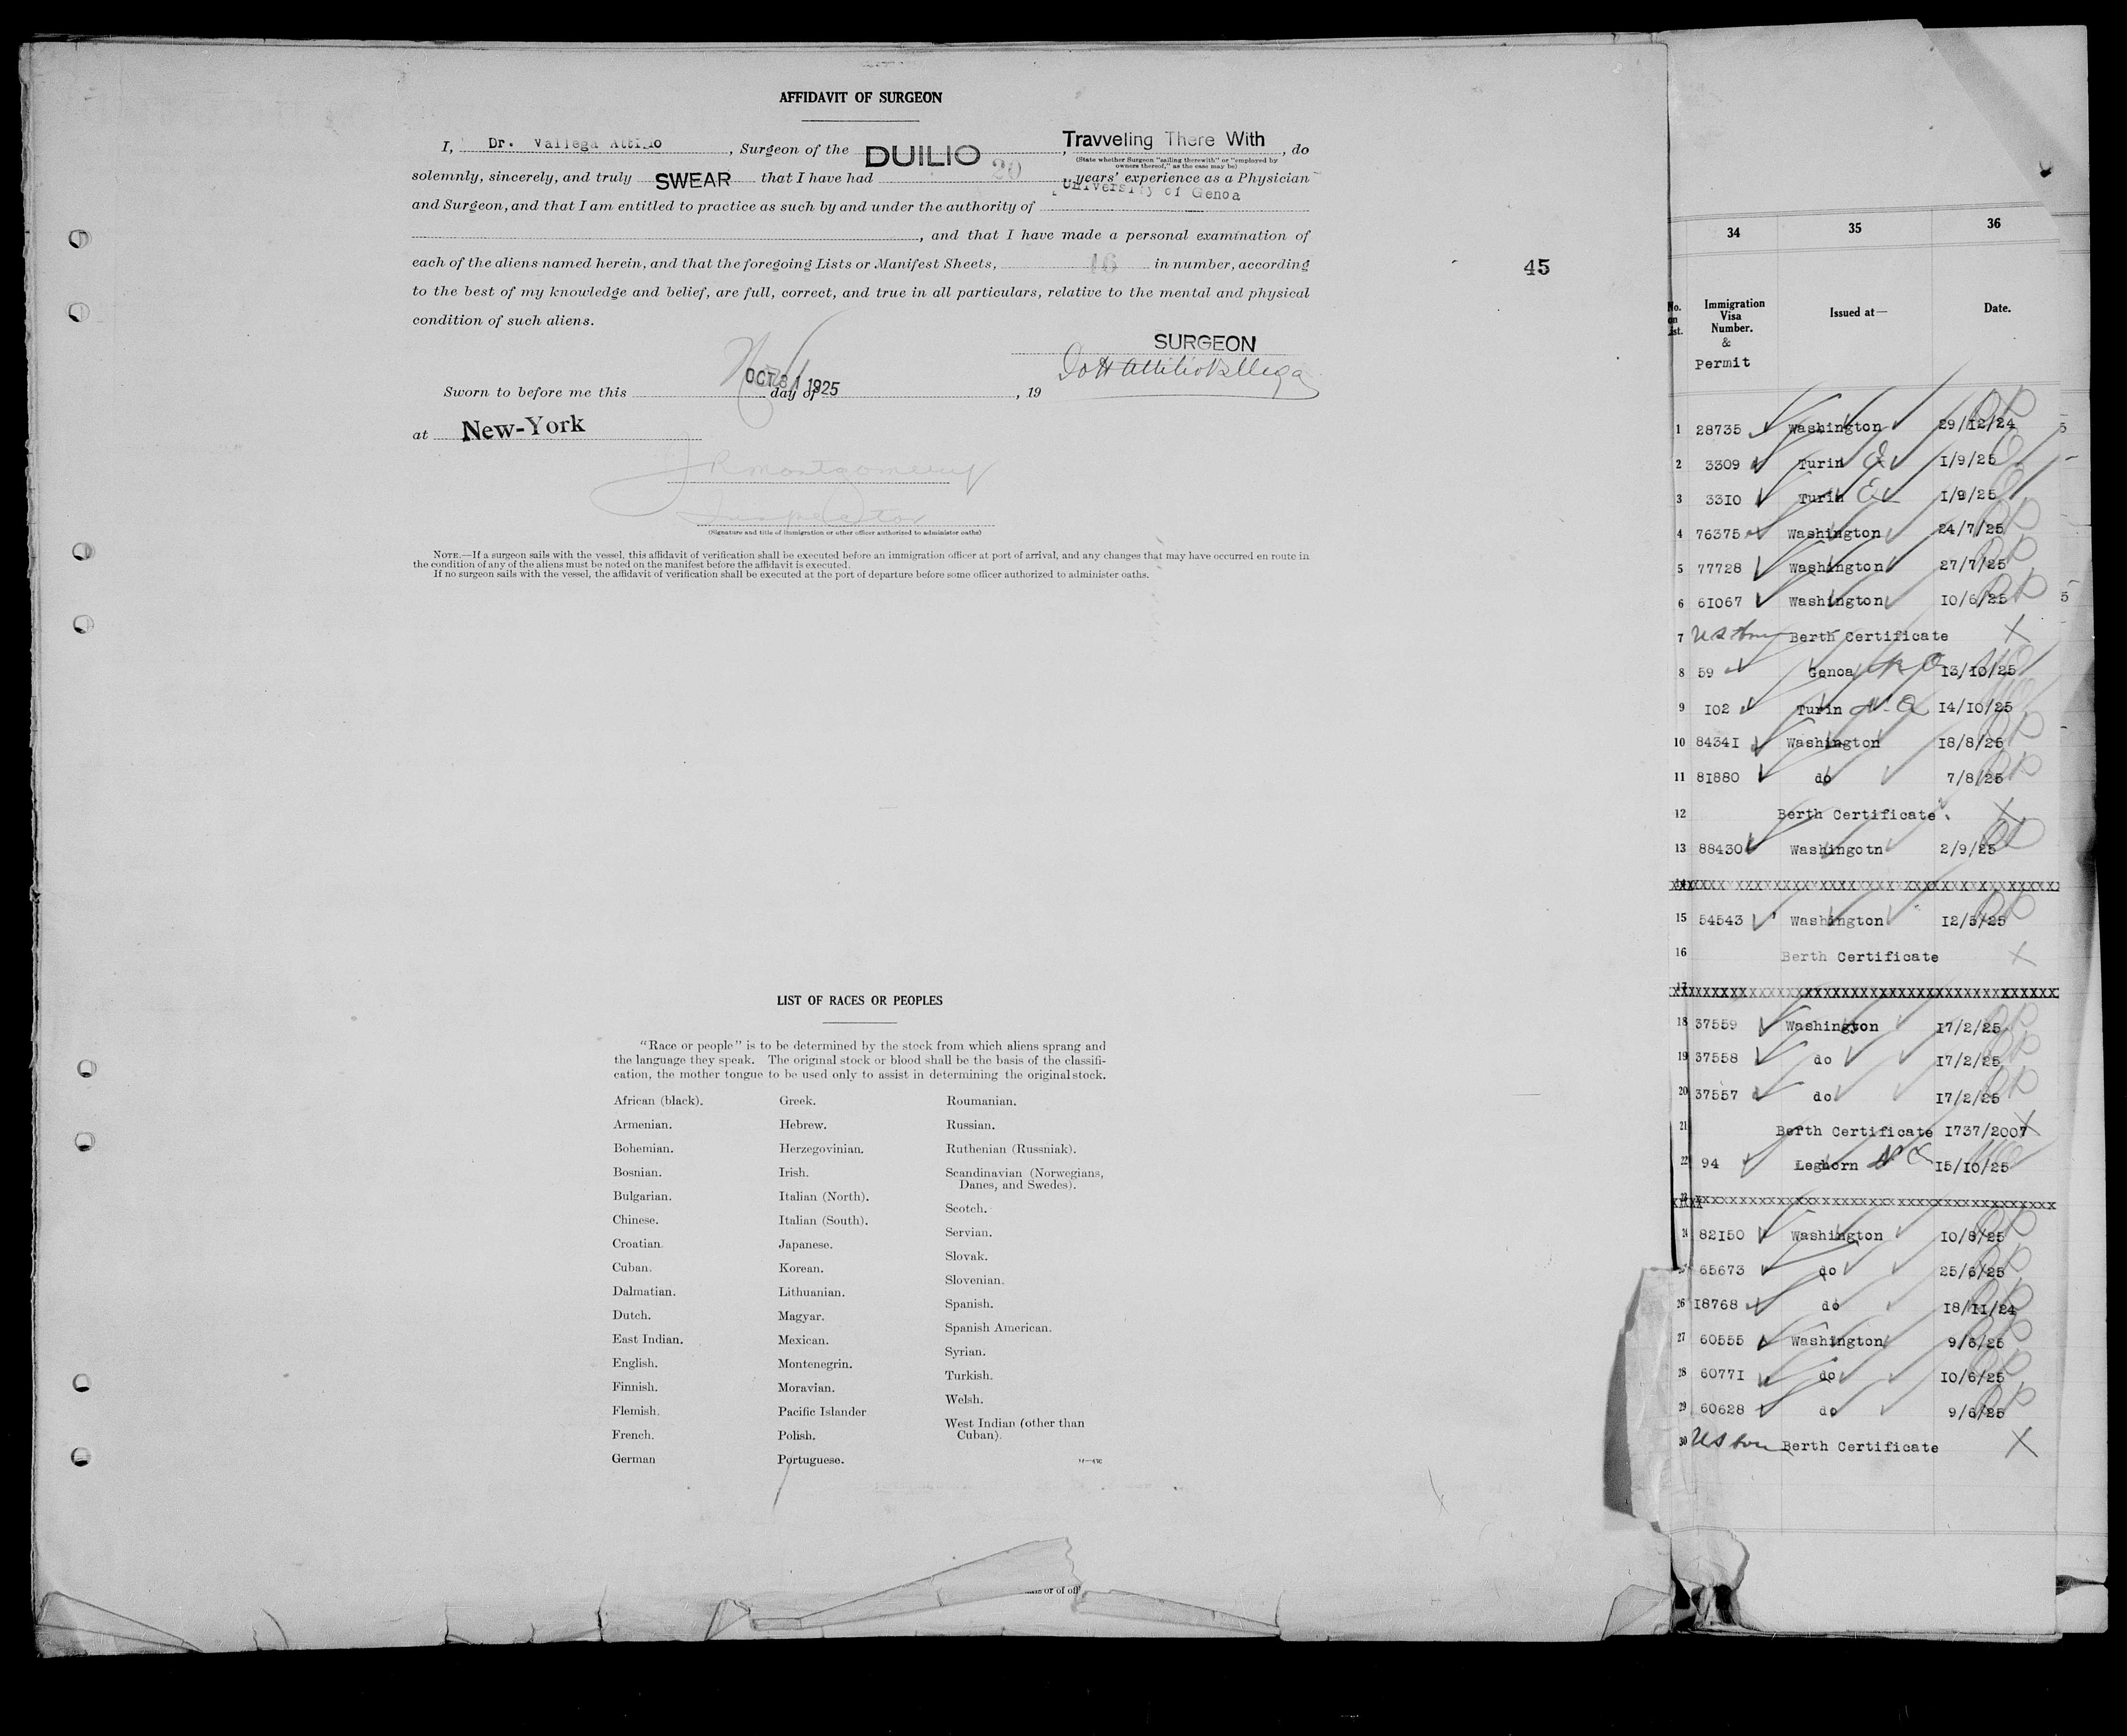 AFFIDAVIT OF SURGEON
I, Dr. Vallega Attilio, Surgeon of the DUILIO, Travveling There With, do
(State whether Surgeon "sailing therewith" or "employed by
owners thereof," as the case may be)
solemnly, sincerely, and truly SWEAR that I have had 20 years' experience as a Physician
University of Genoa
and Surgeon, and that I am entitled to practice as such by and under the authority of
, and that I have made a personal examination of
each of the aliens named herein, and that the foregoing Lists or Manifest Sheets, 16 in number, according
to the best of my knowledge and belief, are full, correct, and true in all particulars, relative to the mental and physical
condition of such aliens.
SURGEON
Dott Attilio Vallega
OCT 31 1925
Sworn to before me this day of , 19
at New-York
JR Montgomery
Inspector
(Signature and title of immigration or other officer authorized to administer oaths)
NOTE.—If a surgeon sails with the vessel, this affidavit of verification shall be executed before an immigration officer at port of arrival, and any changes that may have occurred en route in
the condition of any of the aliens must be noted on the manifest before the affidavit is executed.
If no surgeon sails with the vessel, the affidavit of verification shall be executed at the port of departure before some officer authorized to administer oaths.
45
LIST OF RACES OR PEOPLES
"Race or people" is to be determined by the stock from which aliens sprang and
the language they speak. The original stock or blood shall be the basis of the classifi-
cation, the mother tongue to be used only to assist in determining the original stock.
African (black).
Armenian.
Bohemian.
Bosnian.
Bulgarian.
Chinese.
Croatian.
Cuban.
Dalmatian.
Dutch.
East Indian.
English.
Finnish.
Flemish.
French.
German
Greek.
Hebrew.
Herzegovinian.
Irish.
Italian (North).
Italian (South).
Japanese.
Korean.
Lithuanian.
Magyar.
Mexican.
Montenegrin.
Moravian.
Pacific Islander
Polish.
Portuguese.
Roumanian.
Russian.
Ruthenian (Russniak).
Scandinavian (Norwegians,
Danes, and Swedes).
Scotch.
Servian.
Slovak.
Slovenian.
Spanish.
Spanish American.
Syrian.
Turkish.
Welsh.
West Indian (other than
Cuban).
or of off
34 35 36
No. on List. Immigration Visa Number. & Permit Issued at— Date.
1 28735 Washington 29/12/24
2 3309 Turin 1/9/25
3 3310 Turin 1/9/25
4 76375 Washington 24/7/25
5 77728 Washington 27/7/25
6 61067 Washington 10/6/25
7 US Berth Certificate X
8 59 Genoa NQ 13/10/25
9 102 Turin NQ 14/10/25
10 84341 Washington 18/8/25
11 81880 do 7/8/25
12 Berth Certificate X
13 88430 Washingotn 2/9/25
14
15 54543 Washington 12/5/25
16 Berth Certificate X
17
18 37559 Washington 17/2/25
19 37558 do 17/2/25
20 37557 do 17/2/25
21 Berth Certificate 1737/2007 X
22 94 Leghorn NQ 15/10/25
23
24 82150 Washington 10/8/25
25 65673 do 25/6/25
26 18768 do 18/11/24
27 60555 Washington 9/6/25
28 60771 do 10/6/25
29 60628 do 9/6/25
30 US born Berth Certificate X